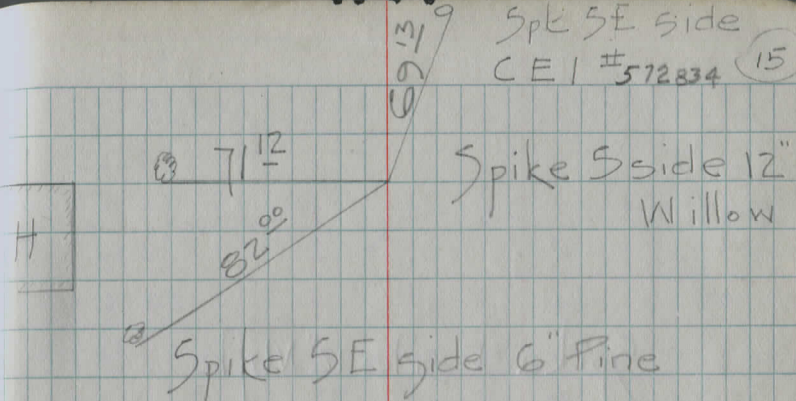 Spk SE side
CEI #572834
15
69 13
71 12
Spike S side 12"
Willow
H
82 00
Spike SE side 6" Pine